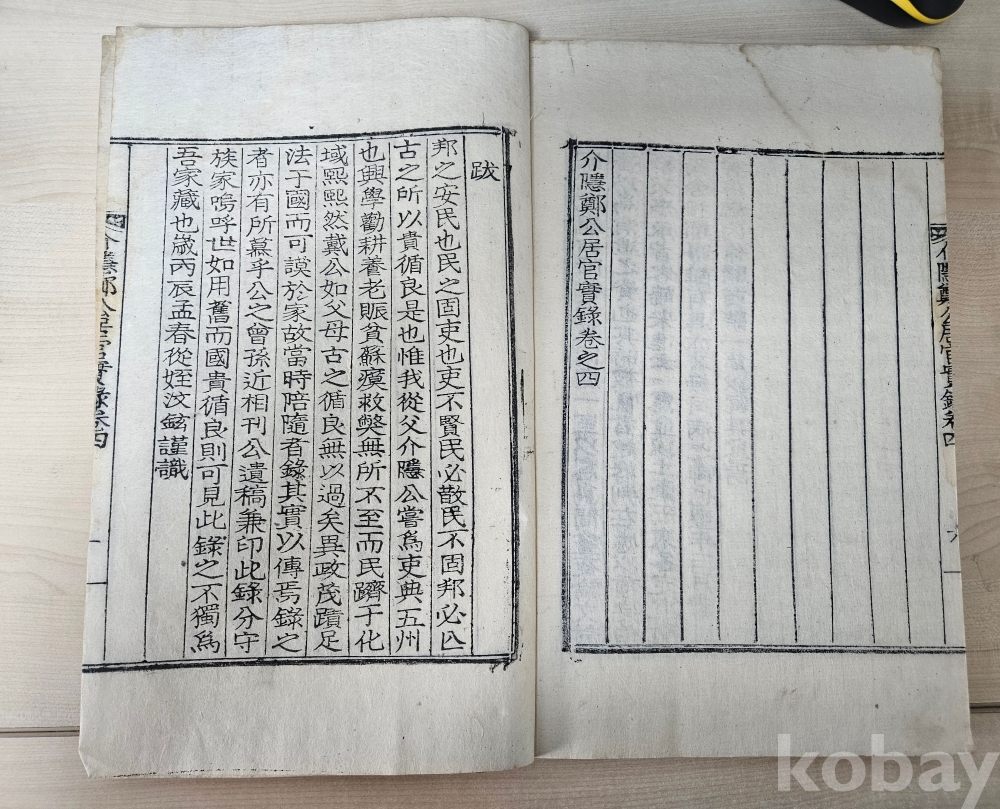 介隱鄭公居官實錄卷之四
介隱鄭公居官實錄卷四
六
跋
邦之安民也民之固吏也吏不賢民必散民不固邦必亾
古之所以貴循良是也惟我從父介隱公嘗爲吏典五州
也興學勸耕養老賑貧蘇瘼救弊無所不至而民躋于化
域熙熙然戴公如父母古之循良無以過矣異政茂蹟足
法于國而可謨於家故當時陪隨者錄其實以傳焉錄之
者亦有所慕乎公之曾孫近相刊公遺稿兼印此錄分守
族家嗚呼世如用舊而國貴循良則可見此錄之不獨爲
吾家藏也歲丙辰孟春從姪汶鉉謹識
介隱鄭公居官實錄卷四
一
kobay